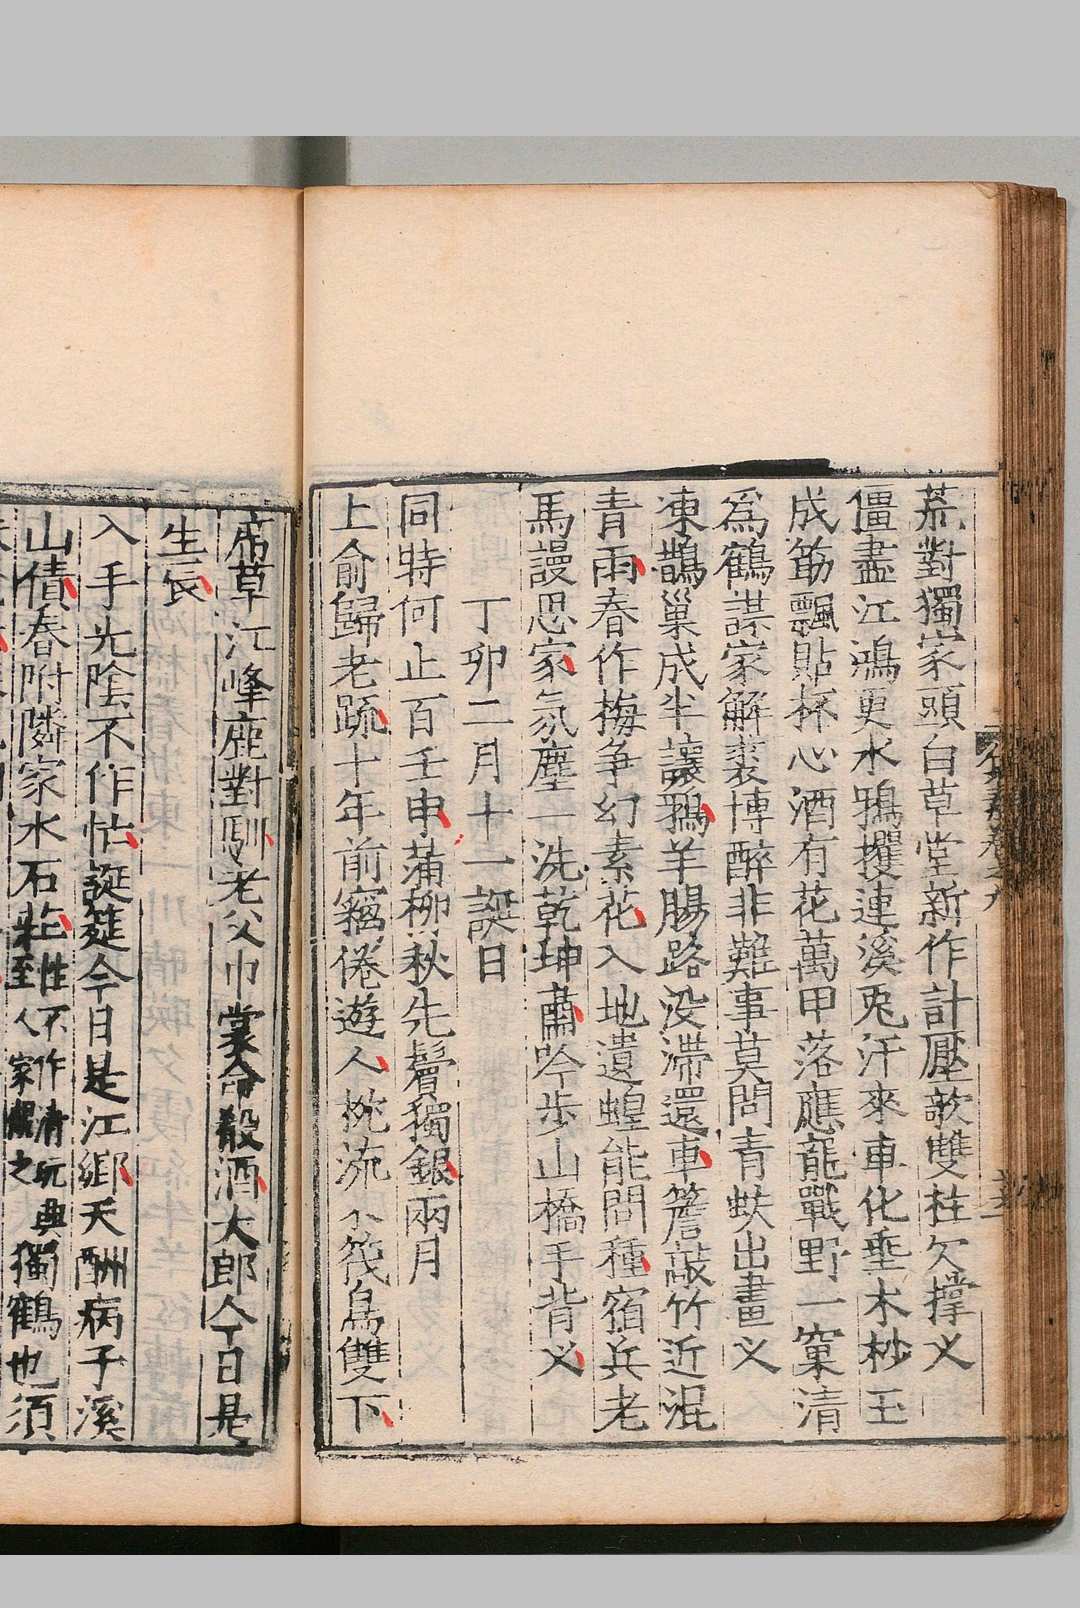 荒對獨家頭白草堂新作計壓歌雙柱欠撐乂
僵盡江鴻更水鴉攫連溪兎汗來車化垂木杪玉
成筯飄貼杯心酒有花萬甲落應龍戰野一窠清
爲鶴謀家解裘博醉非難事莫問青蚨出畫乂
凍鵲巢成半讓鴉羊腸路没滯還車簷敲竹近混
青雨春作梅争幻素花入地遺蝗能問種宿兵老
馬謾思家氛塵一洗乾坤肅吟步山橋手背乂
丁卯二月十一誕日
同特何止百壬申蒲柳秋先鬢獨銀兩月
上俞歸老䟽十年前竊倦遊人枕流不筏鳥雙下
席草江峰鹿對馴老父巾裳命殽酒大郎今日是
生辰
入手光陰不作怗誕筵今日是江鄉天酬病子溪
山債春附隣家水石
性不作清玩典獨鶴也須